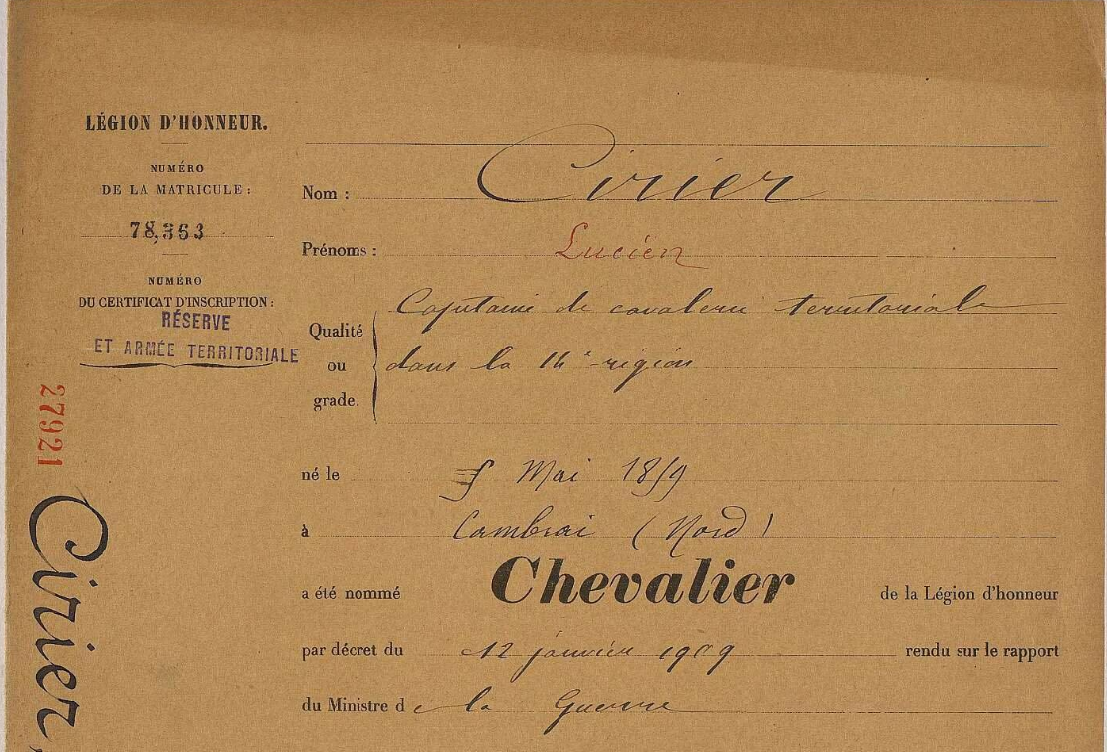 LÉGION D'HONNEUR.
NUMÉRO
DE LA MATRICULE :
78,363
NUMÉRO
DU CERTIFICAT D'INSCRIPTION :
RÉSERVE
ET ARMÉE TERRITORIALE
27921
Cirier,
Nom : Cirier
Prénoms : Lucien
Qualité ou grade.
Capitaine de cavalerie territoriale
dans la 14e région
né le 5 Mai 1859
à Cambrai (Nord)
a été nommé Chevalier de la Légion d'honneur
par décret du 12 janvier 1909 rendu sur le rapport
du Ministre de la Guerre